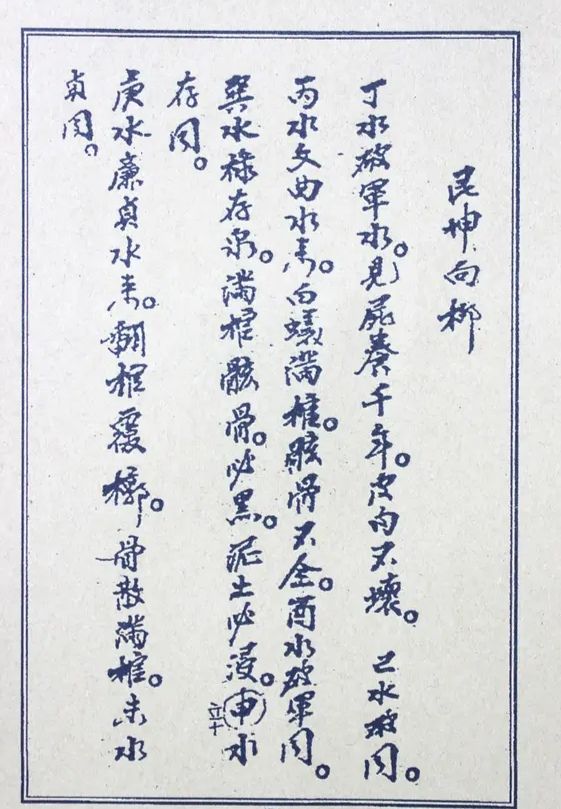 艮坤向
丁水破軍水。見屍養千年。皮肉不壞。 巳水破同。
丙水文曲水來。白蟻滿棺骸骨不全。酉水破軍同。
巽水祿存水。滿棺骸骨。必黑。泥土必浸。申水
存同。
庚水廉貞水来。翻棺覆槨。骨散滿棺。未水
貞同。